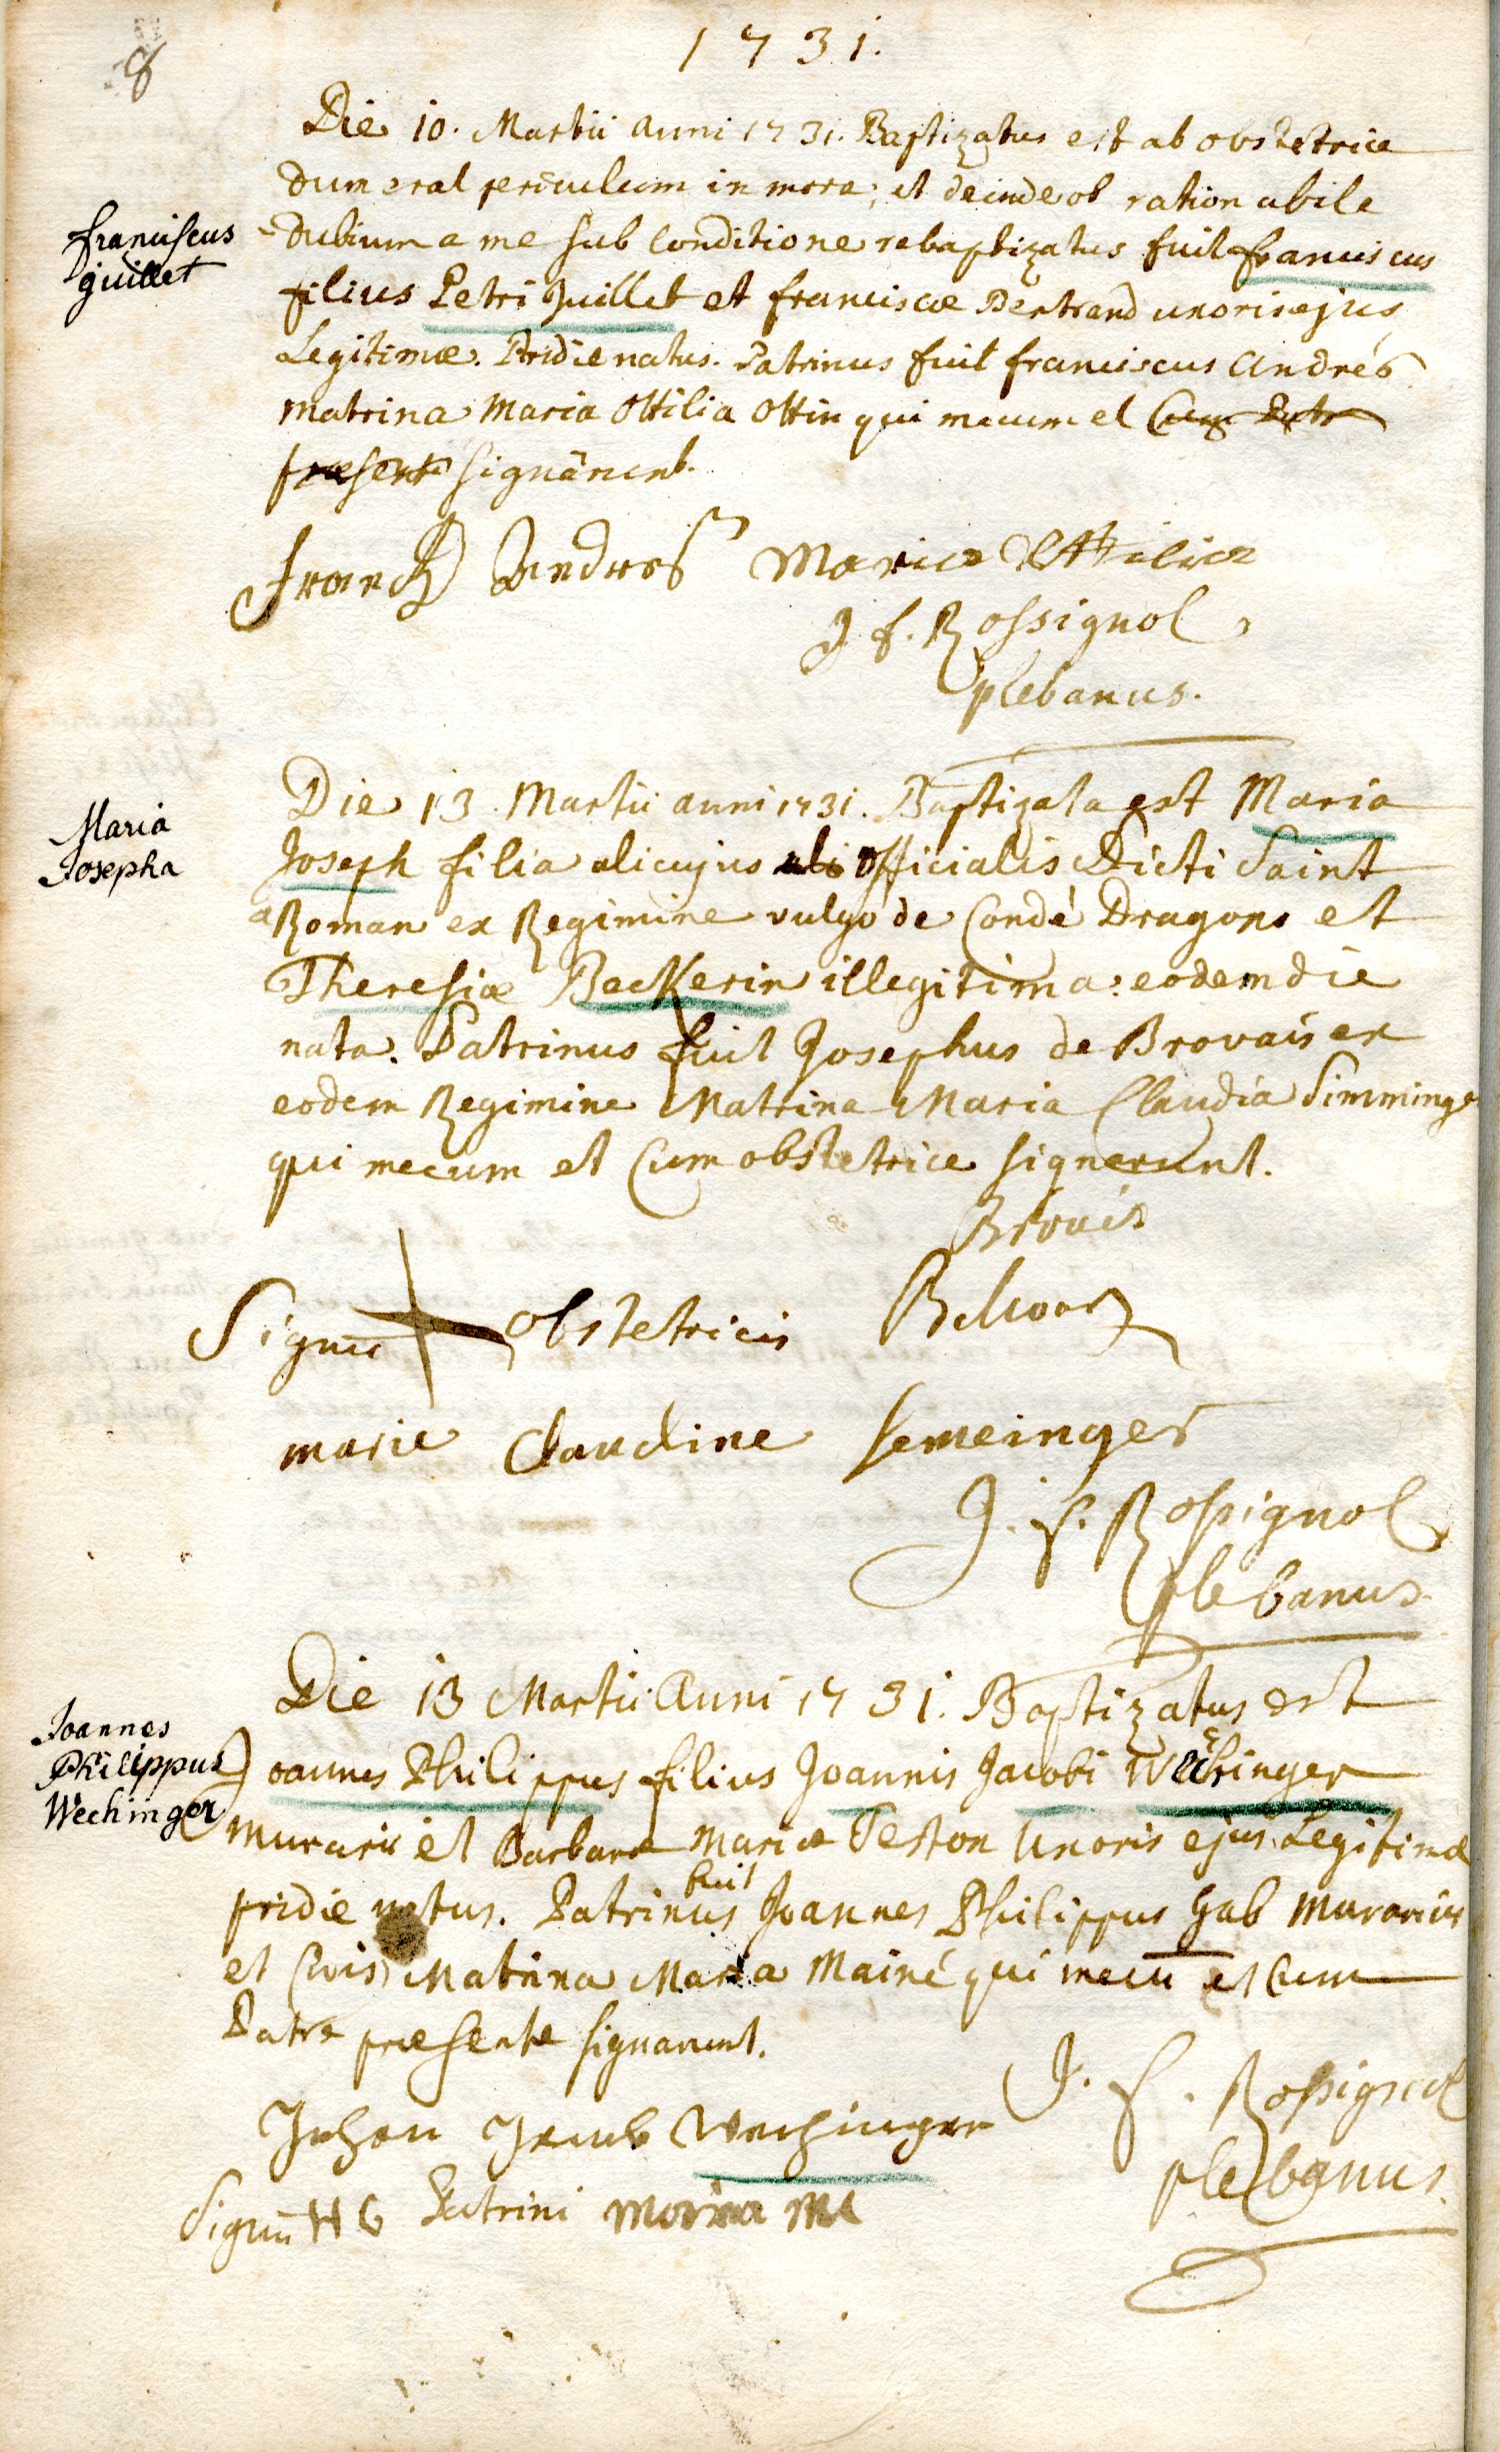 8
1731.
Die 10. Martii anni 1731. Baptizatus est ab obstetrice
dum erat periculum in mora; et deinde ob rationabile
franciscus
guillet
dubium a me sub conditione rebaptizatus fuit franciscus
filius Petri guillet et franciscæ Bertrand uxoris ejus
Legitimæ. Pridie natus. Patrinus fuit franciscus Andrés
matrina Maria Ottilia Ottin qui mecum et cum Patre
præsente signârunt.
Frantz Andres Maria Ottilia
J. f. Rossignol
plebanus.
Maria
Josepha
Die 13. Martii anni 1731. Baptizata est Maria
Joseph filia alicujus officialis Dicti Saint
Roman ex Regimine vulgo de Condé Dragons et
Theresiæ Beckerin illegitima: eodem die
nata. Patrinus fuit Josephus de Brovais ex
eodem Regimine Matrina Maria Claudia Simminger
qui mecum et Cum obstetrice signerunt.
Brouais
Signū obstetricis
marie Claudine semeinger
J. f. Rossignol
plebanus
Joannes
Philippus
Wechinger
Die 13 Martii Anni 1731. Baptizatus est
Joannes Philippus filius Joannis Jacobi Wechinger
murarii et Barbaræ Mariæ Teston Uxoris ejus Legitimæ
pridie natus. Patrinus fuit Joannes Philippus Gab murarius
et Civis Matrina Maria Mainé qui mecū et Cum
Patre præsente signarunt.
J. f. Rossignol
plebanus.
Johan Jacob Wechinger
Signū HG Patrini Maria M